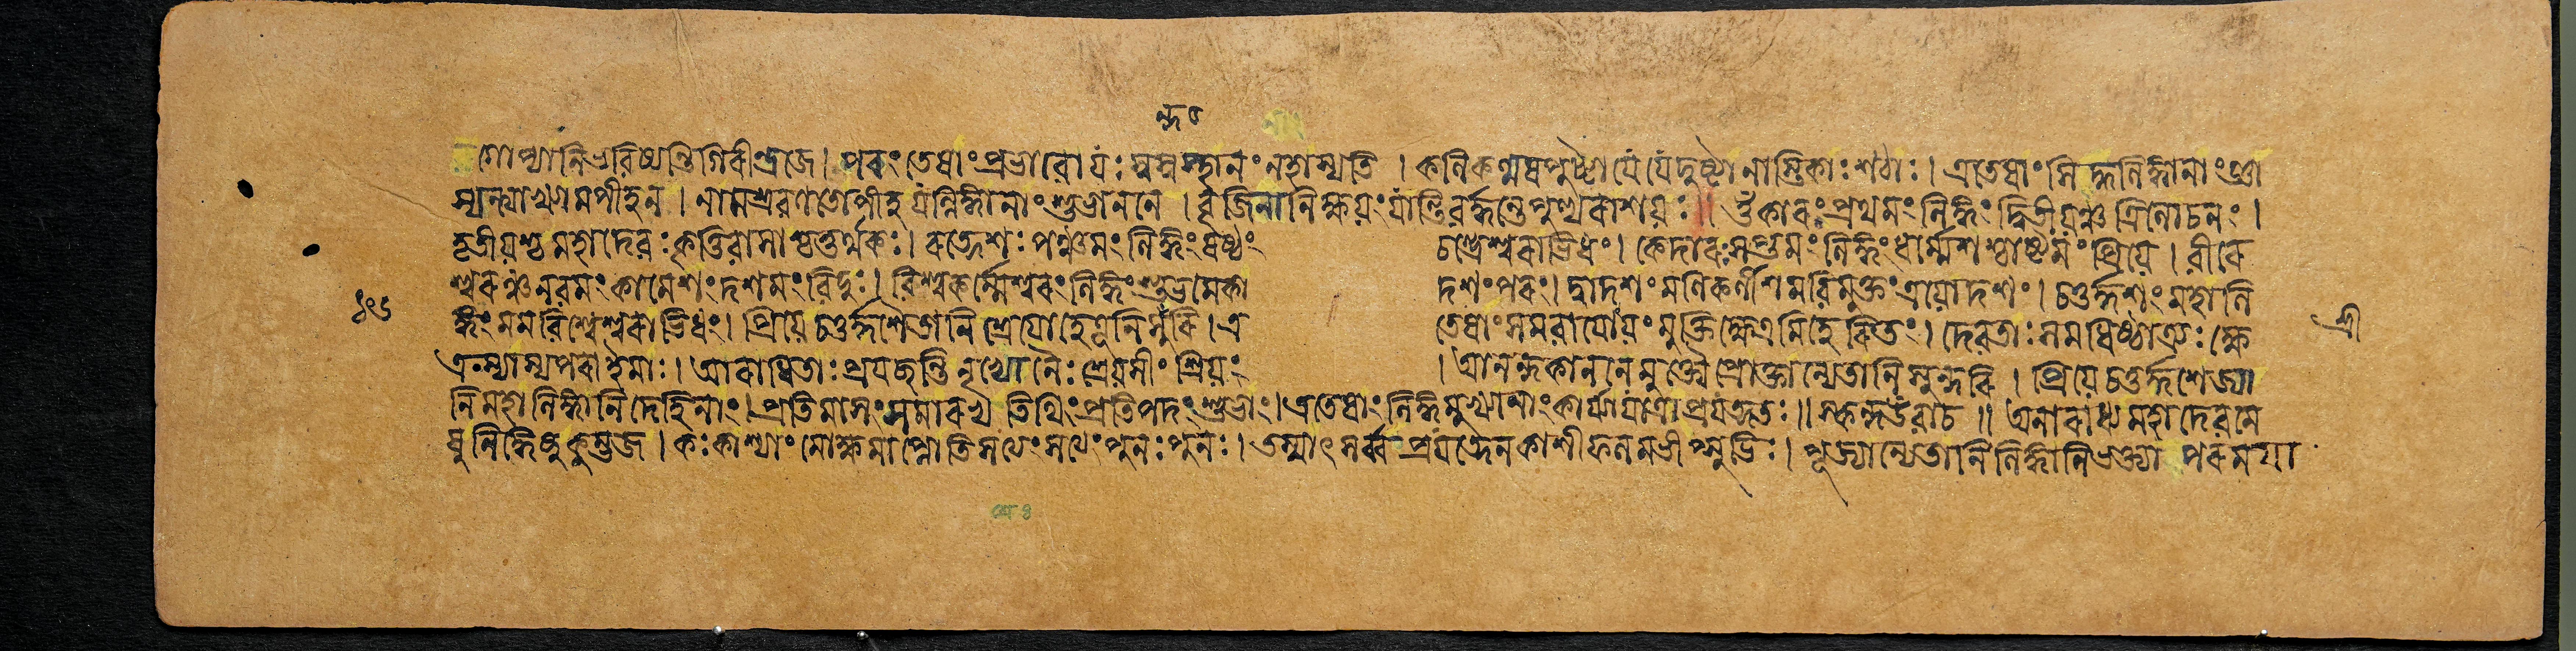 ন্দ০
গোপ্যানি ভবিষ্যন্তি গিরীন্দ্রজে। পরং তেষাং প্রভাবো যঃ স্বস্বস্থানং ন হাস্যতি । কলিকল্মষপুষ্টা যে যে দুষ্টা নাস্তিকাঃ শঠাঃ। এতেষাং সিদ্ধলিঙ্গানাং জ্ঞা
স্যন্ত্যাখ্যামপীহ ন । নামশ্রবণতোপীহ যল্লিঙ্গানাং শুভাননে । বৃজিনানি ক্ষয়ং যান্তি বর্দ্ধন্তে পুণ্যরাশয়ঃ॥ ওঁকারঃ প্রথমং লিঙ্গং দ্বিতীয়ঞ্চ ত্রিলোচনং।
তৃতীয়শ্চ মহাদেবঃ কৃত্তিবাসাশ্চতুর্থকঃ। রত্নেশঃ পঞ্চমং লিঙ্গং ষষ্ঠং চন্দ্রেশ্বরাভিধং। কেদারঃ সপ্তমং লিঙ্গং ধর্ম্মেশশ্চাষ্টমং প্রিয়ে । বীরে
শ্বরঞ্চ নবমং কামেশং দশমং বিদুঃ। বিশ্বকর্ম্মেশ্বরং লিঙ্গং শুভমেকা দশং পরং। দ্বাদশং মণিকর্ণীশমবিমুক্তং ত্রয়োদশং। চতুর্দ্দশং মহালি
ঙ্গং মম বিশ্বেশ্বরাভিধং। প্রিয়ে চতুর্দ্দশৈতানি শ্রেয়োহেতূনি সুন্দরি। এ তেষাং সমবায়োয়ং মুক্তিক্ষেত্রমিহেরিতং। দেবতাঃ সমধিষ্ঠাত্র্যঃ ক্ষে
শ্রী
ত্রস্যাস্য পরা ইমাঃ। আরাধিতাঃ প্রযচ্ছন্তি নৃভ্যো নৈঃশ্রেয়সীং শ্রিয়ং । আনন্দকাননে মুক্ত্যৈ প্রোক্তান্যেতানি সুন্দরি । প্রিয়ে চতুর্দ্দশেজ্যা
নি মহালিঙ্গানি দেহিনাং। প্রতিমাসং সমারভ্য তিথিং প্রতিপদং শুভাং। এতেষাং লিঙ্গমুখ্যানাং কার্য্যা যাত্রা প্রযত্নতঃ॥ স্কন্দ উবাচ॥ অনারাধ্য মহাদেবমে
ষু লিঙ্গেষু কুম্ভজ । কঃ কাশ্যাং মোক্ষমাপ্নোতি সত্যং সত্যং পুনঃ পুনঃ। তস্মাৎ সর্ব্বপ্রযত্নেন কাশীফলমভীপ্সুভিঃ। পূজ্যান্যেতানি লিঙ্গানি ভক্ত্যা পরময়া